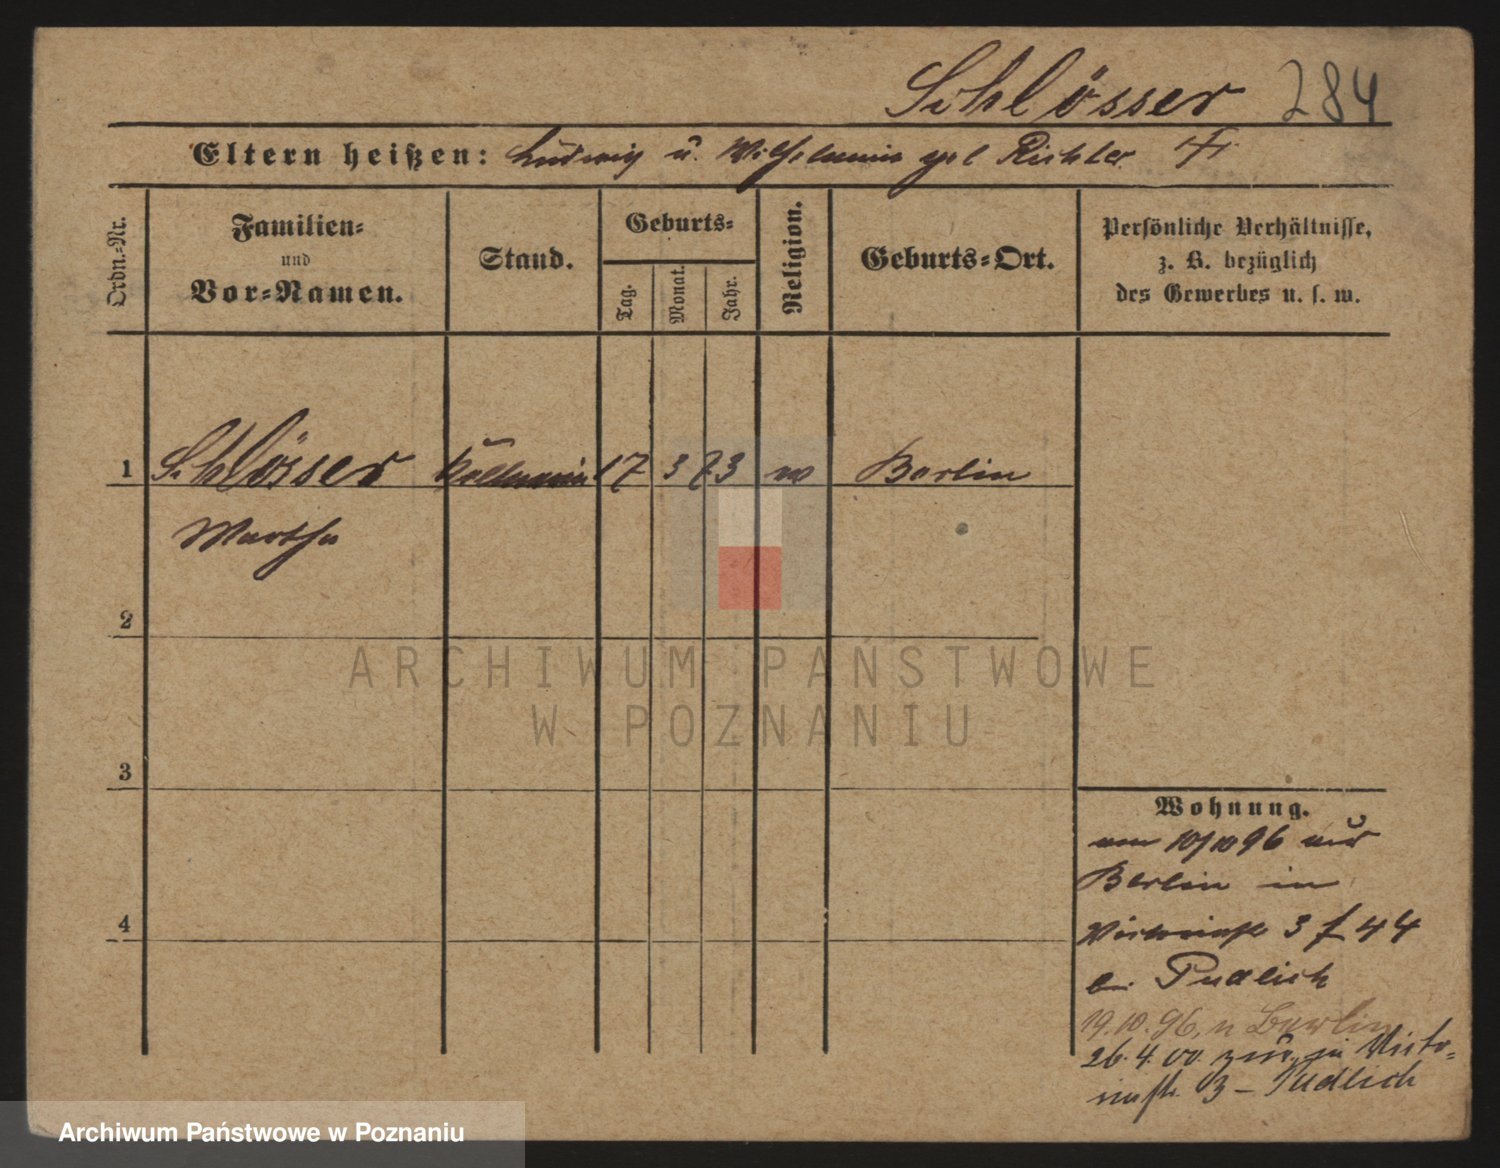 Schlösser 284
Eltern heißen: Ludwig u. Wilhelmine geb Richter
Ordn.-Nr.
Familien- und Vor-Namen.
Stand.
Geburts-
Tag.
Monat.
Jahr.
Religion.
Geburts-Ort.
Persönliche Verhältnisse,
z. B. bezüglich
des Gewerbes u. s. w.
1 Schlösser Kellnerin 17 3 73 Berlin
Martha
2
3
4
Wohnung.
am 10/10 96 aus
Berlin in
3 f 44
bei Pudlich
19.10.96, n Berlin
26.4.00. zur. in Victo-
riastr. 3 - Pudlich
ARCHIWUM PAŃSTWOWE
W POZNANIU
Archiwum Państwowe w Poznaniu